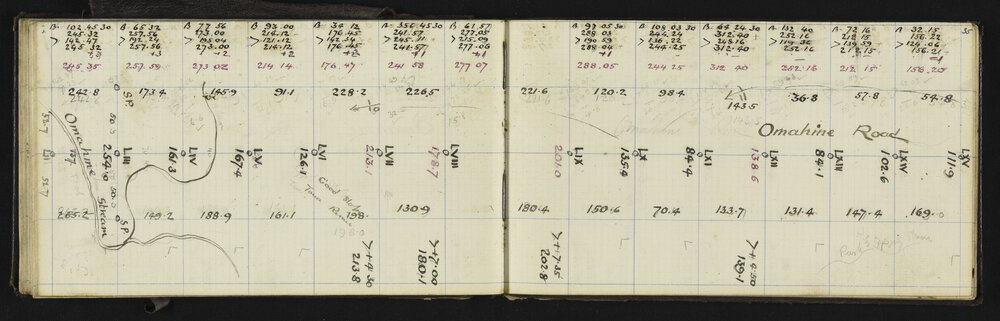 35
B. 102 45 30 B. 65 32 B 77 56 B 93.00 B 34 12 B 350 45 30 B 61 57
245 32 257 56 273.00 214.12 176.45 241.57 277.05
142.47 192 24 195 04 121.12 142 34 215.09
245 32 257.56 273.00 214.12 176 45 241.57 277.06
+3 +3 +2 +2 +2 +1 +1
245 35 257.59 273 02 214 14 176.47 241 58 277 07
B 97 05 30 B 108 03 30 B 64 24 30 B 132 40 B 72 16 B 32.15
288 03 244 24 312 40 252 16 212 15 156.22
190 59 136.22 248 16 139 59 124.06
288 04 244.25 312.40 252 16 212.15 156.21
288.05 244 25 312 40 252.16 212 15 156.20
242.8 173.4 145.9 91.1 228.2 226.5
221.6 120.2 98.4 143.5 36.8 57.8 54.8
S.P.
S.P.
Omahine Road
52.7
LII
52.7
Omahine Stream
50.0
254.0
50.0
LIII
161.3
LIV
167.4
LV
126.1
LVI
213.1
LVII
178.7
LVIII
201.0
LIX
135.4
LX
84.1
LXI
138.6
LXII
84.1
LXIII
102.6
LXIV
111.9
LXV
S.P.
265.2 149.2 188.9 161.1 198. 130.9
198.0
180.4 150.6 70.4 133.7 131.4 147.4 169.0
>+4.30
213.8
>+7.00
180.1
>+7.35
202.8
>+4.50
139.1